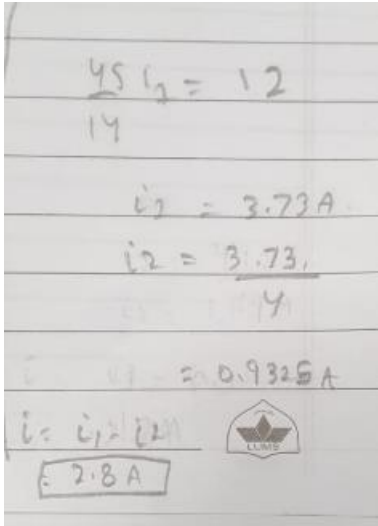 45 i₂ = 12
14
i₂ = 3.73 A
i2 = 3.73
4
= 0.9325 A
i = i₁ - i2
= 2.8 A
LUMS